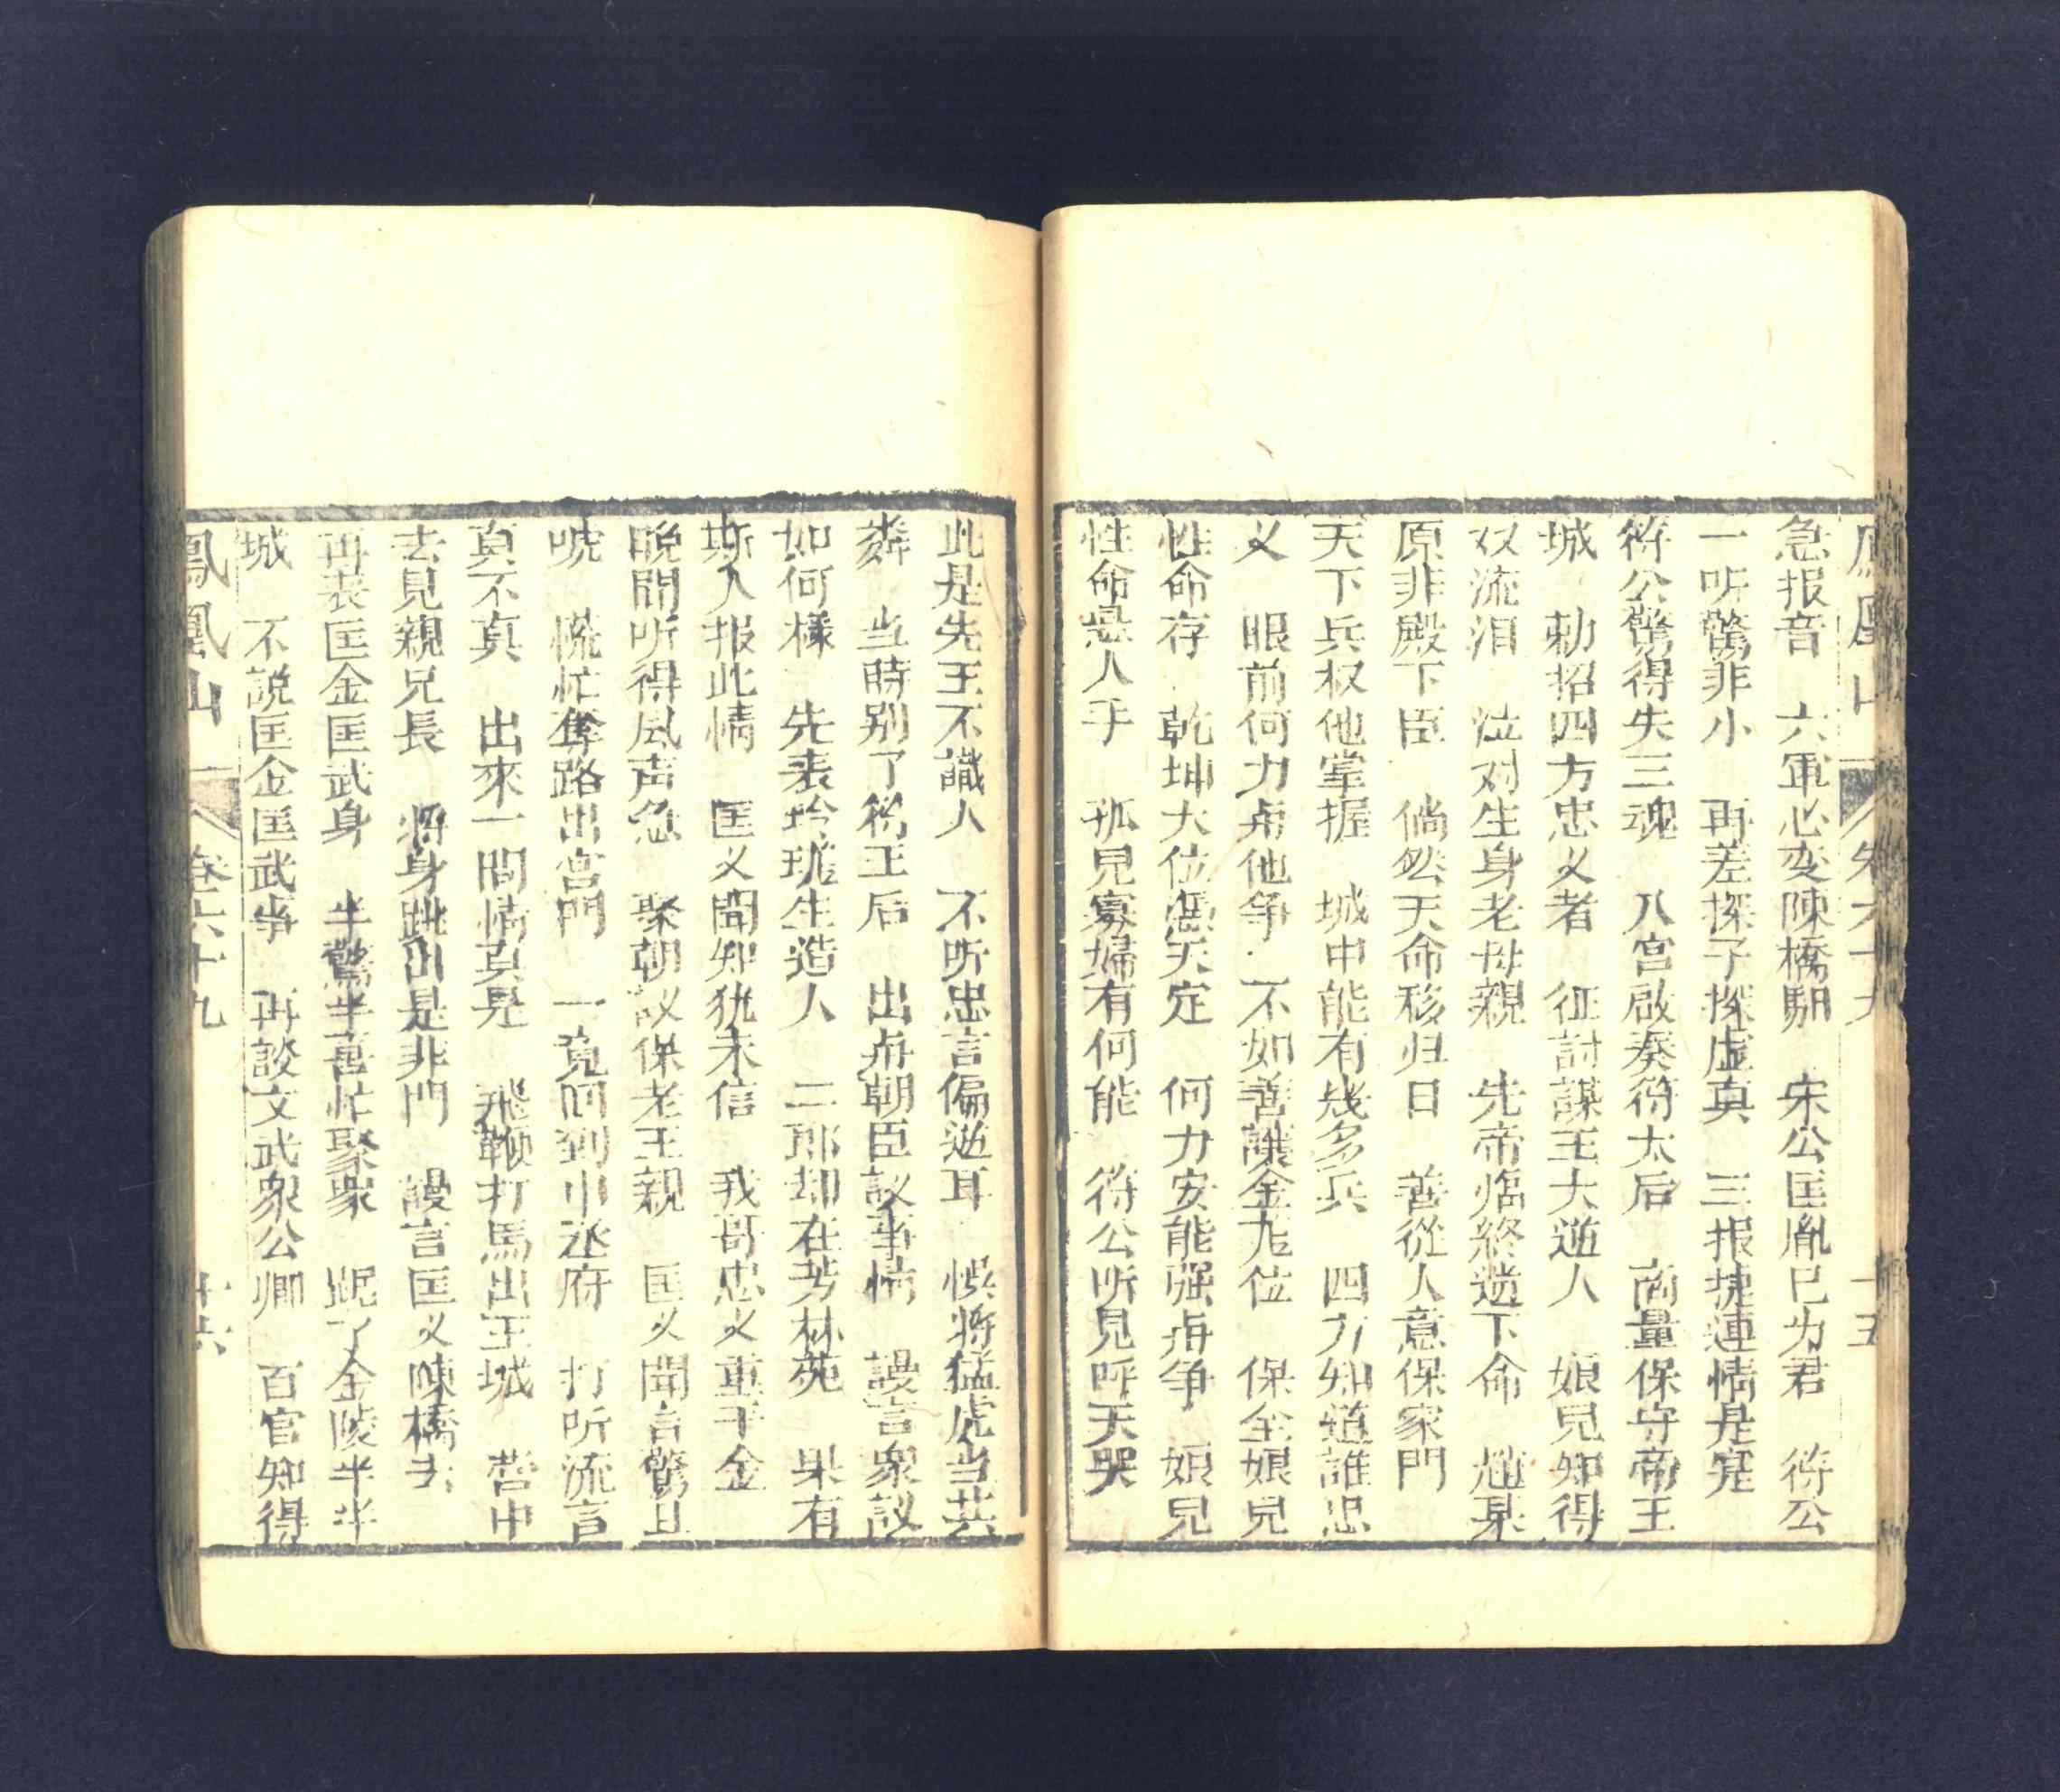 鳳凰山 卷六十九 十五
急报音 六軍必变陳橋馹 宋公匡胤已为君 符公
一听驚非小 再差探子探虚真 三报捷連情是寔
符公驚得失三魂 入宫啟奏符太后 商量保守帝王
城 勅招四方忠义者 征討謀王大逆人 娘兒知得
双流泪 泣对生身老母親 先帝临終遗下命 趙某
原非殿下臣 倘然天命移归日 善從人意保家門
天下兵权他掌握 城中能有幾多兵 四方知道誰忠
义 眼前何力再他争 不如善讓金龙位 保全娘兒
性命存 乾坤大位凭天定 何力安能强再争 娘兒
性命悬人手 孤兒寡婦有何能 符公听見呼天哭
此是先王不識人 不听忠言偏逆耳 悞將猛虎当共
粦 当時别了符王后 出再朝臣議事情 謾言衆議
如何樣 先表玲珑生造人 二郎却在芳林苑 果有
斯人报此情 匡义聞知犹未信 我哥忠义重千金
晚間听得風声急 聚朝議保老王親 匡义聞言驚且
唬 慌忙奪路出宫門 一竟回到中丞府 打听流言
真不真 出來一問情真是 飛鞭打馬出王城 营中
去見親兄長 將身跳出是非門 謾言匡义陳橋去
再表匡金匡武身 半驚半喜忙聚衆 跑了金陵半半
城 不説匡金匡武事 再談文武衆公卿 百官知得
鳳凰山 卷六十九 十六